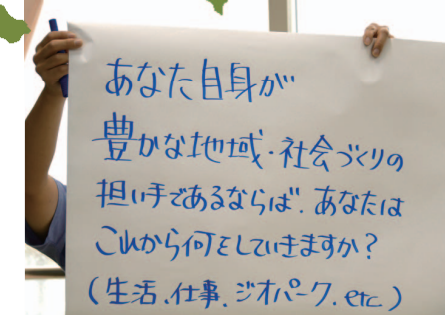 あなた自身が
豊かな地域・社会づくりの
担い手であるならば、あなたは
これから何をしていきますか?
(生活、仕事、ジオパーク、etc)